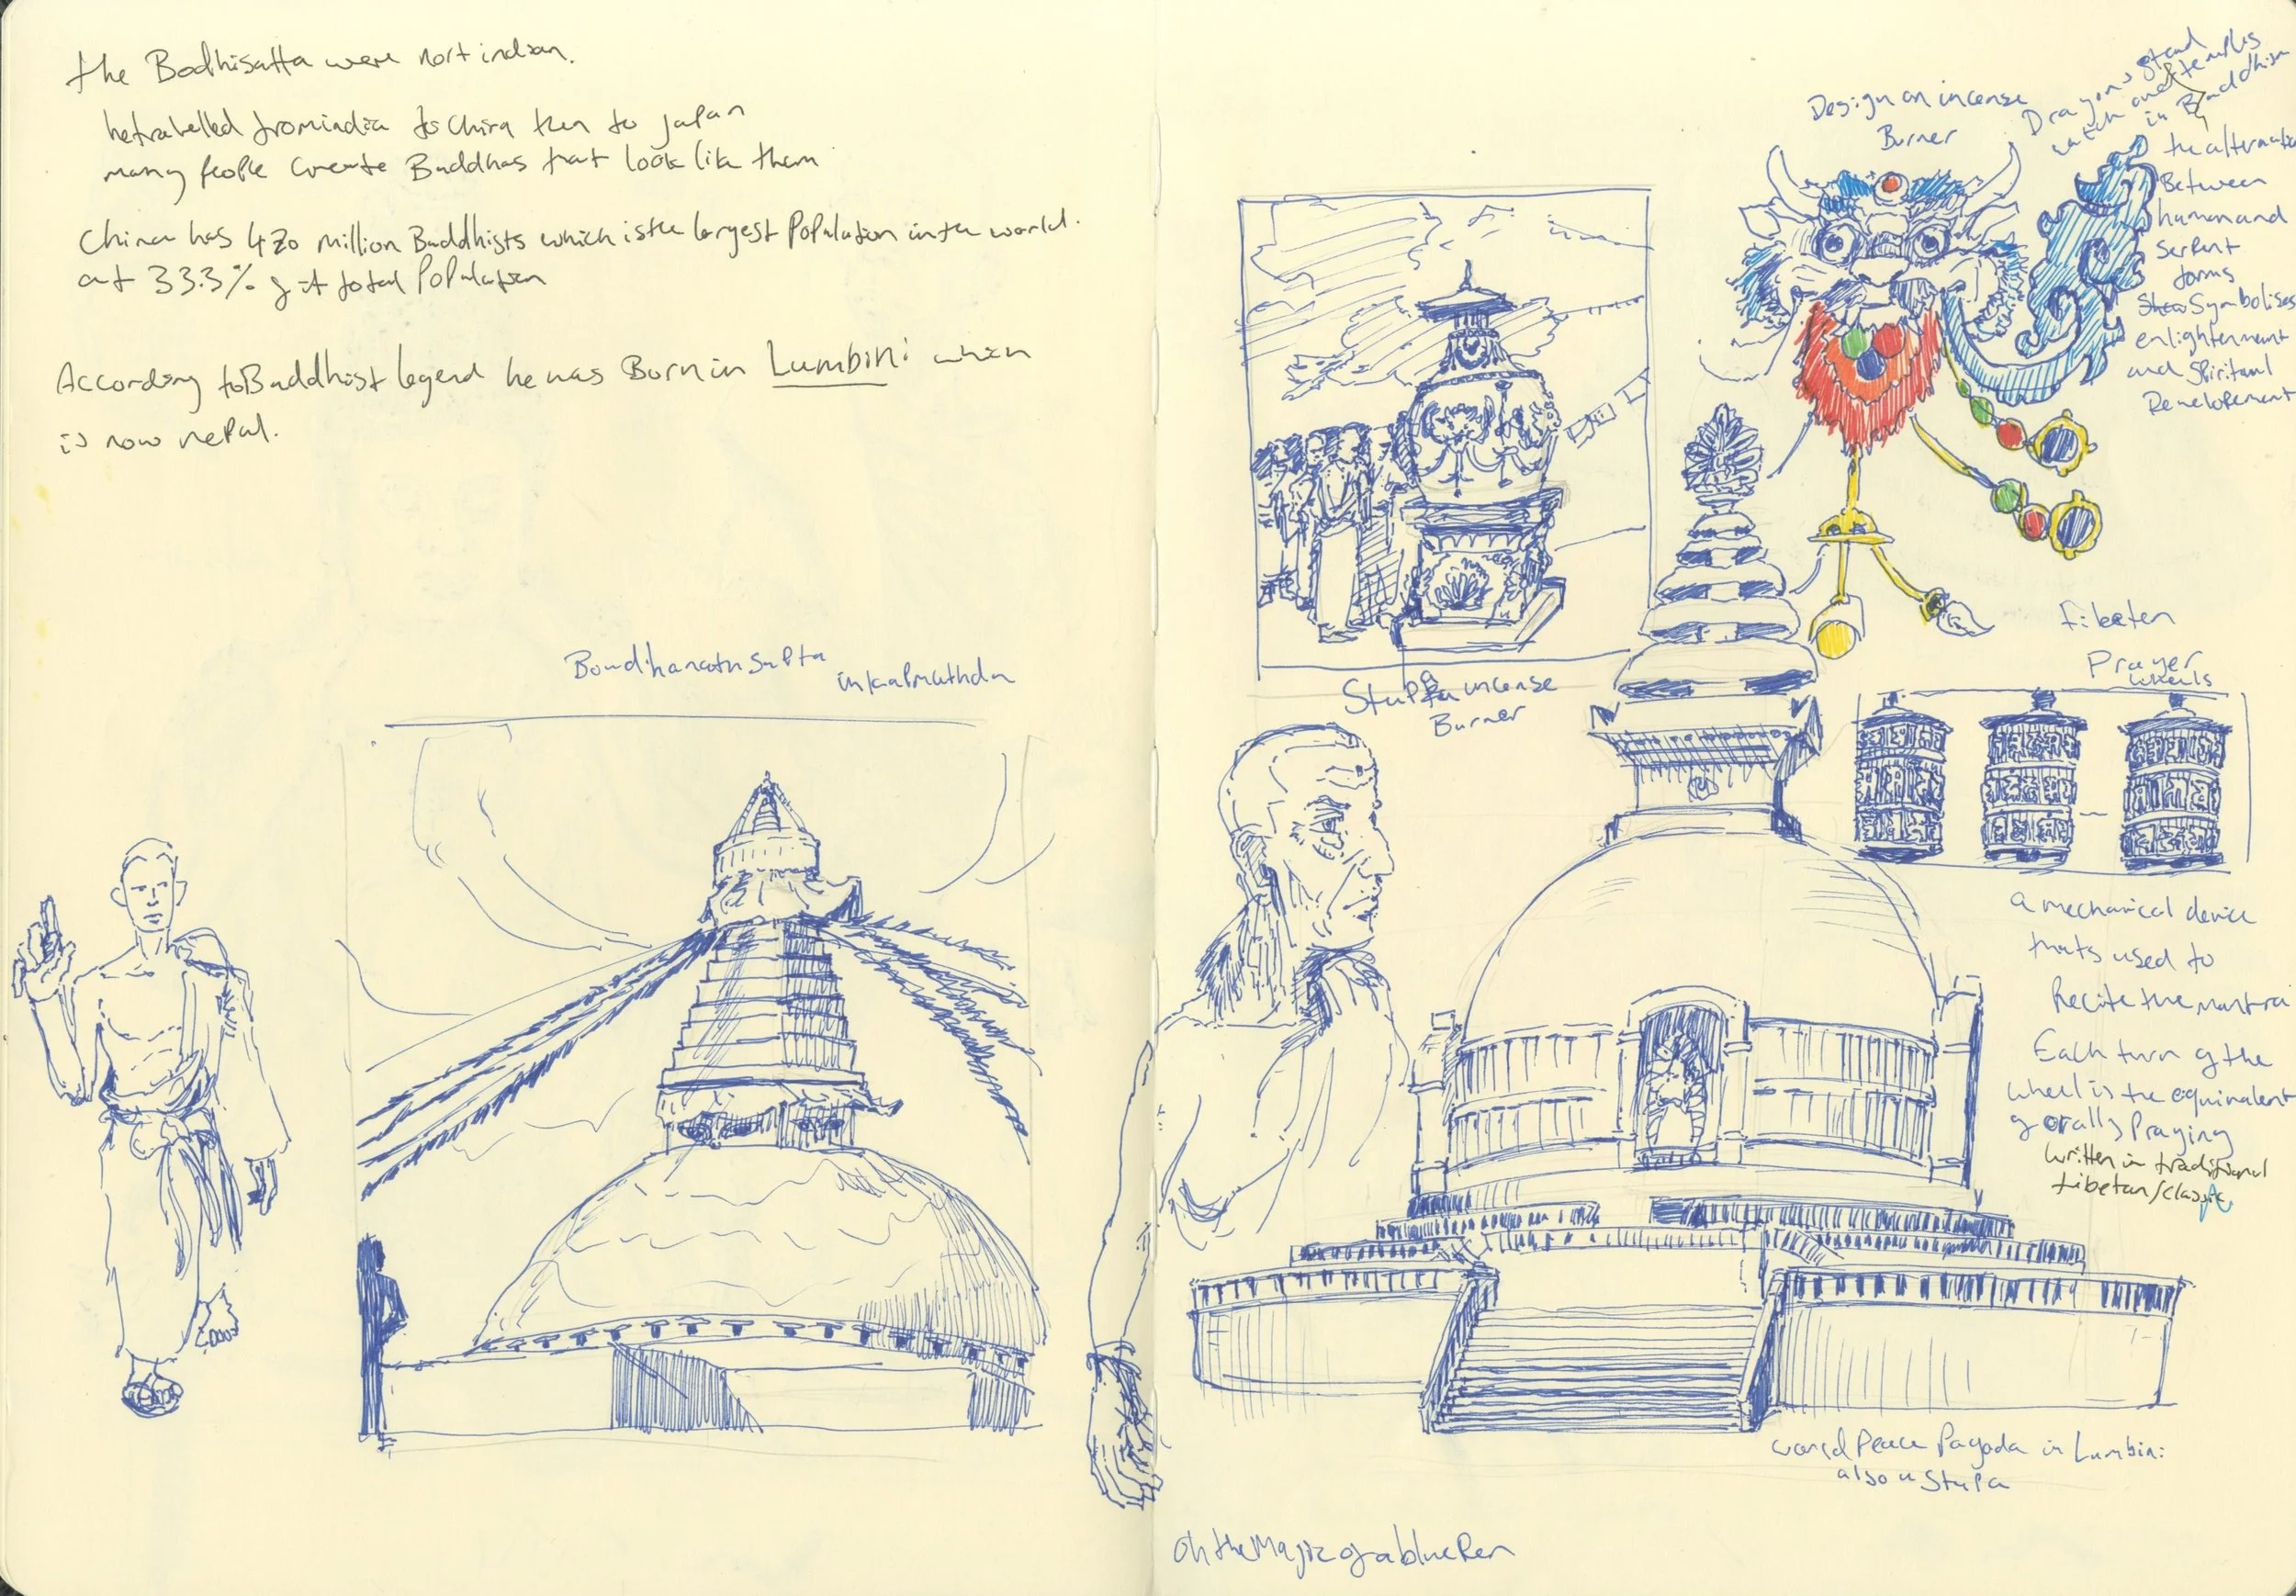 the Bodhisatta were nort indian.
hetrabelled fromindia to China then to Japan
many people Create Buddhas that look like them
China has 420 million Buddhists which is the largest Population in the world.
at 33.3% of it total Population
According to Buddhist legend he was Born in Lumbini which
is now nepal.
Boudhanath Supta
in katmathdu
Design on incense
Burner
Dragons stand
watch outside temples
in Buddhism
the alternation
Between
human and
Serpent
forms
Symbolises
enlightenment
and Spiritual
Development
Stupa incense
Burner
tibeten
Prayer
wheels
a mechanical device
thats used to
Recite the mantra
Each turn of the
wheel is the equivalent
of orally Praying
written in traditional
tibetan/classic
world Peace Pagoda in Lumbini
also a Stupa
Oh the Magic of a blue Pen